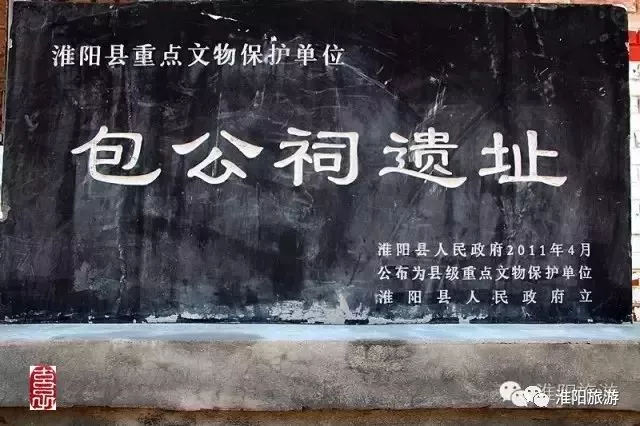 淮阳县重点文物保护单位
包公祠遗址
淮阳县人民政府2011年4月
公布为县级重点文物保护单位
淮阳县人民政府立
淮阳旅游
淮阳旅游